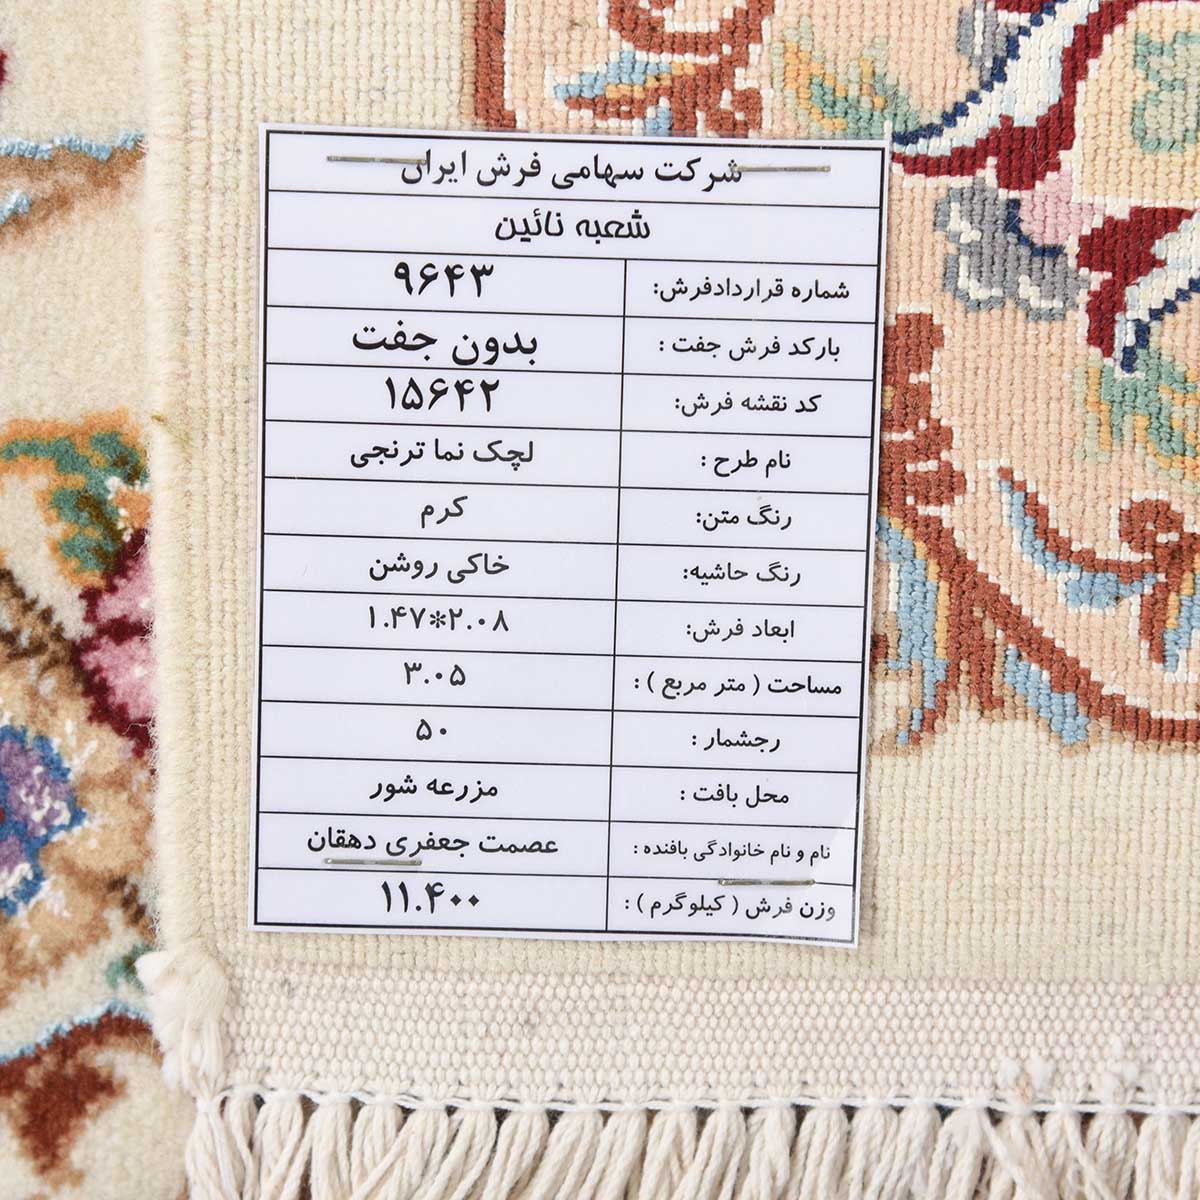 شرکت سهامی فرش ایران
شعبه نائین
شماره قراردادفرش: ۹۶۴۳
بارکد فرش جفت : بدون جفت
کد نقشه فرش: ۱۵۶۴۲
نام طرح : لچک نما ترنجی
رنگ متن: کرم
رنگ حاشیه: خاکی روشن
ابعاد فرش: ۱.۴۷*۲.۰۸
مساحت ( متر مربع ) : ۳.۰۵
رجشمار : ۵۰
محل بافت : مزرعه شور
نام و نام خانوادگی بافنده : عصمت جعفری دهقان
وزن فرش ( کیلوگرم ) : ۱۱.۴۰۰